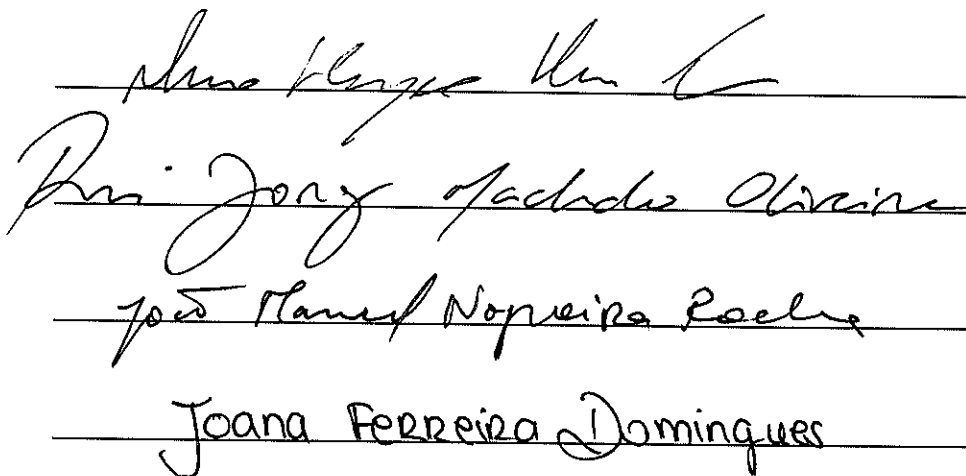 Rui Jorge Machado Oliveira
João Manuel Nogueira Rocha
Joana Ferreira Domingues